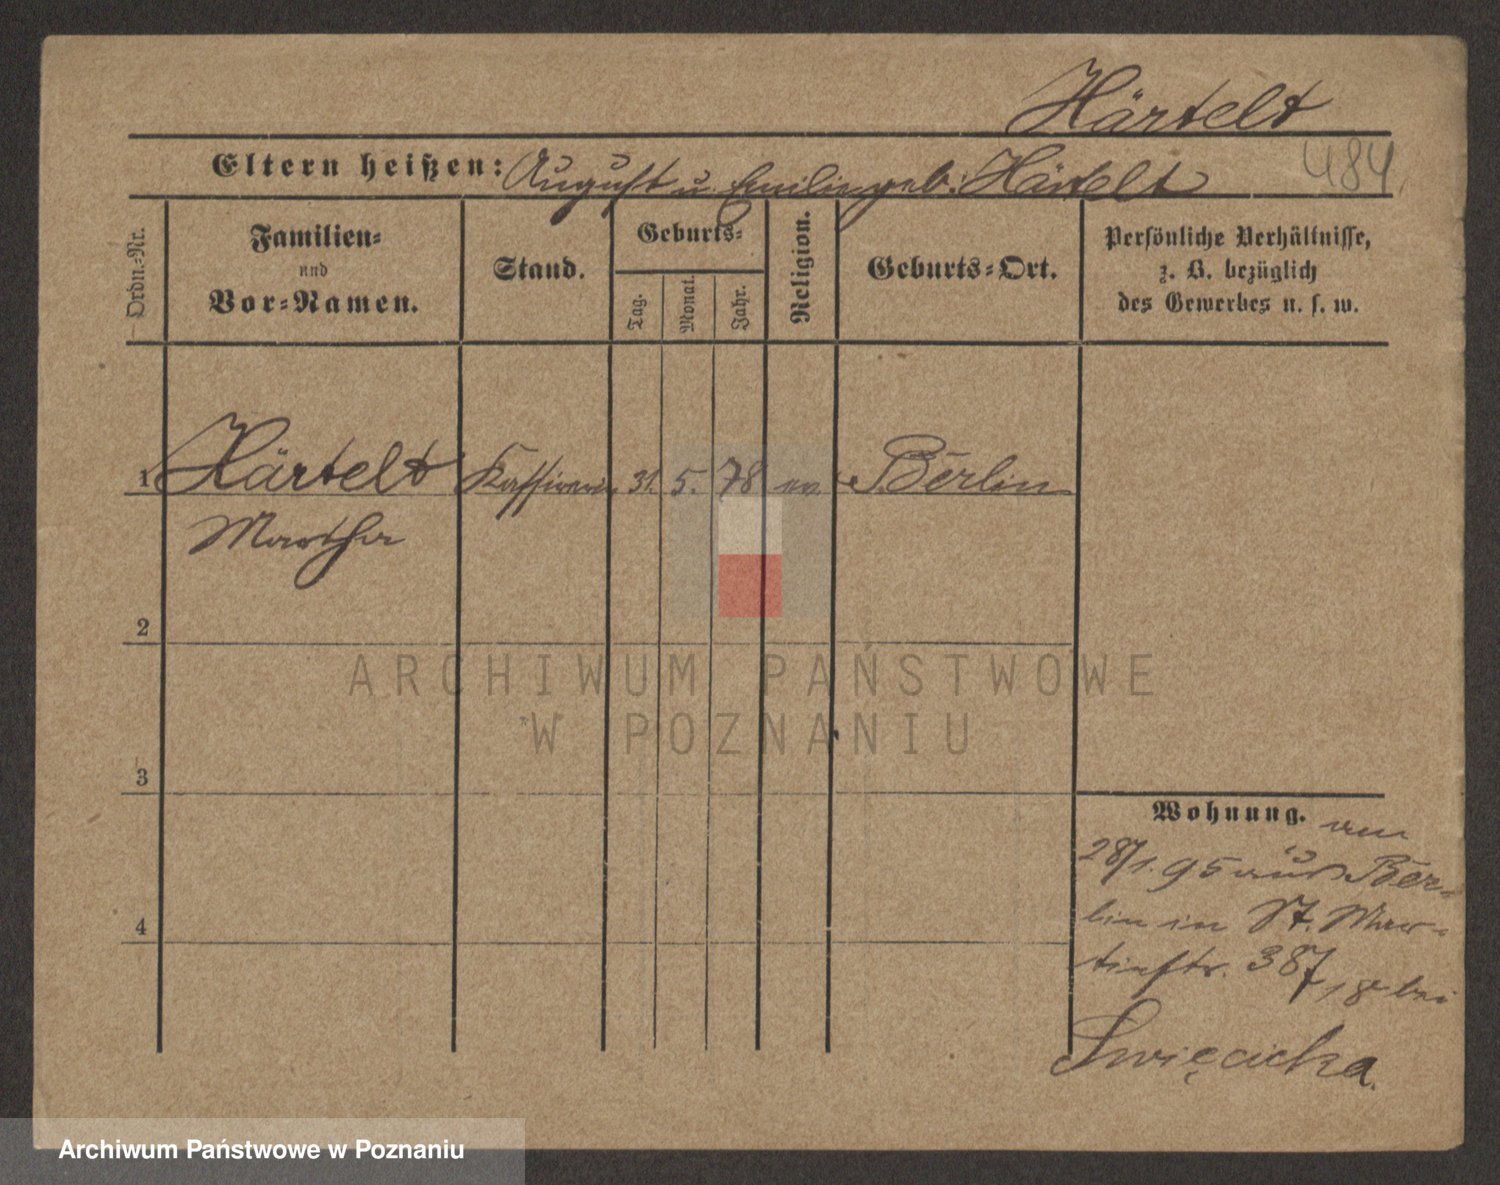 Härtelt
484
Eltern heißen: August u. Emilie geb. Härtelt
Ordn.-Nr.
Familien-
und
Vor-Namen.
Stand.
Geburts-
Tag.
Monat.
Jahr.
Religion.
Geburts-Ort.
Persönliche Verhältnisse,
z. B. bezüglich
des Gewerbes u. s. w.
1 Härtelt Kassirerin 31. 5. 78 ev. Berlin
Martha
2
ARCHIWUM PAŃSTWOWE
W POZNANIU
3
4
Wohnung. am
28/1. 95 aus Ber-
lin in St. Mar-
tinstr. 38/
18 bei
Święcicka.
Archiwum Państwowe w Poznaniu